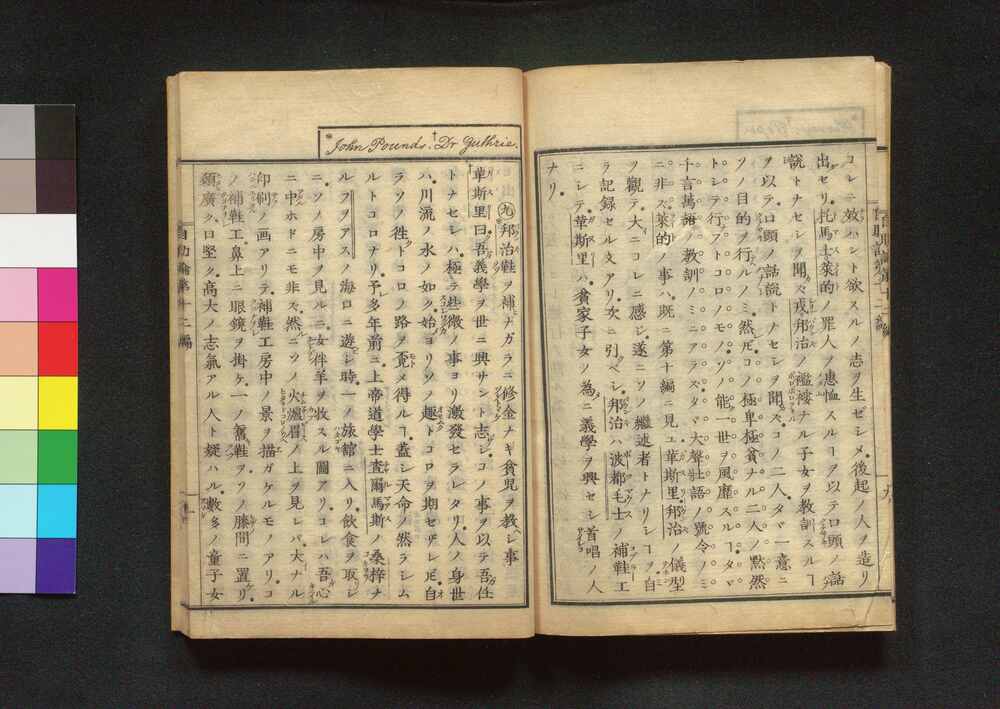 コレニ效ハント欲スルノ志ヲ生ゼシメ後起ノ人ヲ造リ
出セリ托馬士萊的ノ罪人ノ患恤スルヿヲ以テロ頭ノ話
説トナセシヲ聞ズ戎邦治ノ襤褸ナル子女ヲ教訓スルヿ
ヲ以テロ頭ノ話説トナセシヲ聞ズコノ二人タヾ一意ニ
ソノ目的ヲ行ルノミ然𪜈コノ極卑極貧ナル二人ノ黙然
トシテ行フトコロノモノソノ能ク世ヲ風靡スルヿタヾ
千言萬語ノ教訓ノミニアラズタヾ大聲壮語ノ號令ノミ
ニ非ズ萊的ノ事ハ既ニ第十編ニ見ユ華斯里邦治ノ儀型
ヲ觀テ大ニコレニ感ジ遂ニソノ繼述者トナリシヿヲ自
ラ記録セル文アリ次ニ引クベシ邦治ハ波都毛士ノ補鞋工
ニシテ華斯里ハ貧家子女ノ為ニ義學ヲ興セシ首唱ノ人
ナリ
John Pounds. Dr Guthrie.
㊈邦治鞋ヲ補ナガラニ修金ナキ貧兒ヲ教シ事
華斯里曰吾義學ヲ世ニ興サント志シコノ事ヲ以テ吾任
トナセシハ極テ些微ノ事ヨリ激發セラレタリ人ノ身世
ハ川流ノ水ノ如ク始メヨリソノ趣トコロヲ期セザレ𪜈自
ラソノ徃トコロノ路ヲ覓メ得ルヿ蓋シ天命ノ然ラシム
ルトコロナリ予多年前ニ上帝道學士査爾馬斯ノ桑梓ナ
ルフヲアスノ海口ニ遊シ時一ノ旅舘ニ入リ飲食ヲ取シ
ニソノ房中ヲ見ルニ女伴羊ヲ牧スル圖アリコレハ吾心
ニ中ホドニモ非ズ然ニソノ火爐眉ノ上ヲ見レバ大ナル
印刷ノ画アリテ補鞋工房中ノ景ヲ描ガケルモノアリコ
ノ補鞋工鼻上ニ眼鏡ヲ掛ケ一ノ舊鞋ヲソノ膝間ニ置リ
額廣ク口堅ク高大ノ志氣アル人ト疑ハル數多ノ童子女
自助論第十二編